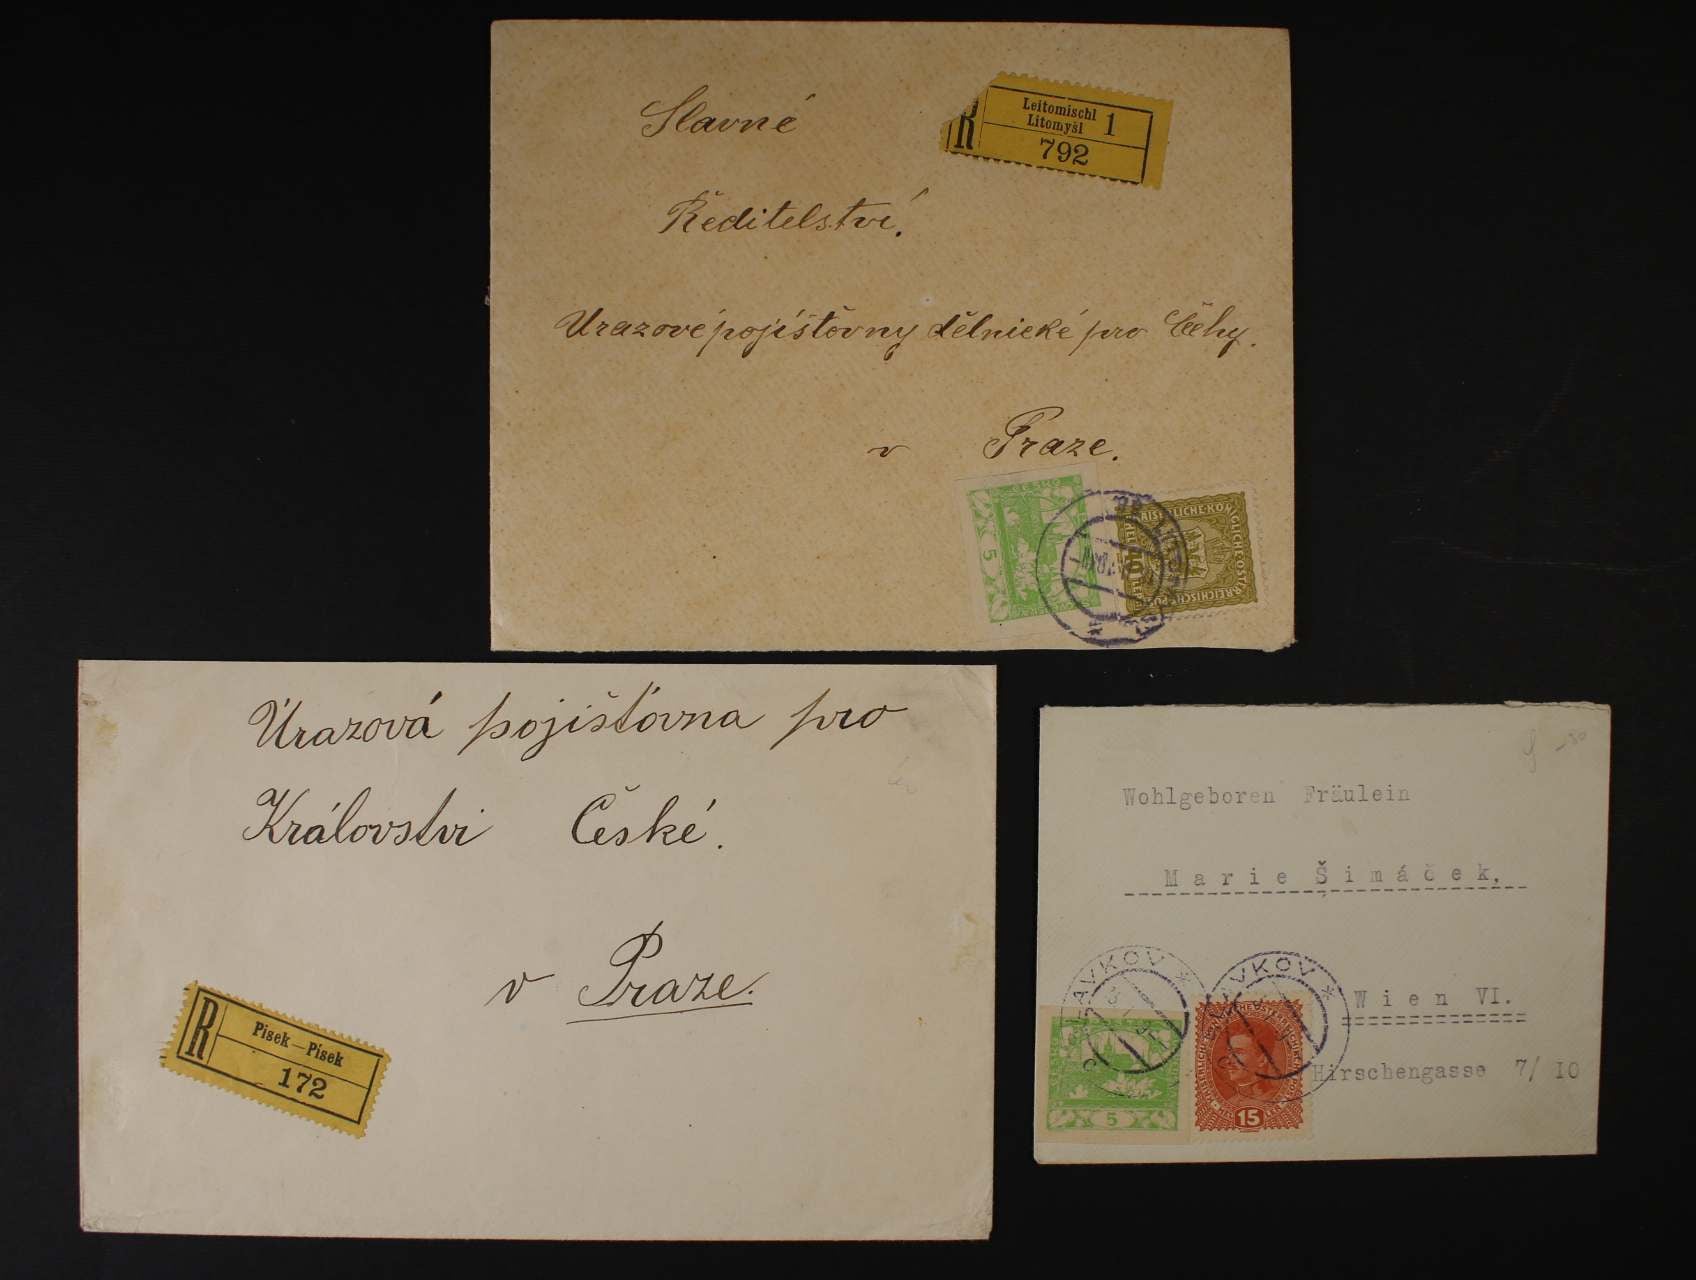 Slavné
Leitomischl
Litomyšl
1
R
792
Ředitelství.
Úrazové pojišťovny dělnické pro Čechy.
v Praze.
5
10
Úrazová pojišťovna pro
Království České.
v Praze.
R
Pisek—Písek
172
Wohlgeboren Fräulein
Marie Šimáček.
SLAVKOV *
SLAVKOV *
Wien VI.
Hirschengasse 7/ 10
5
15